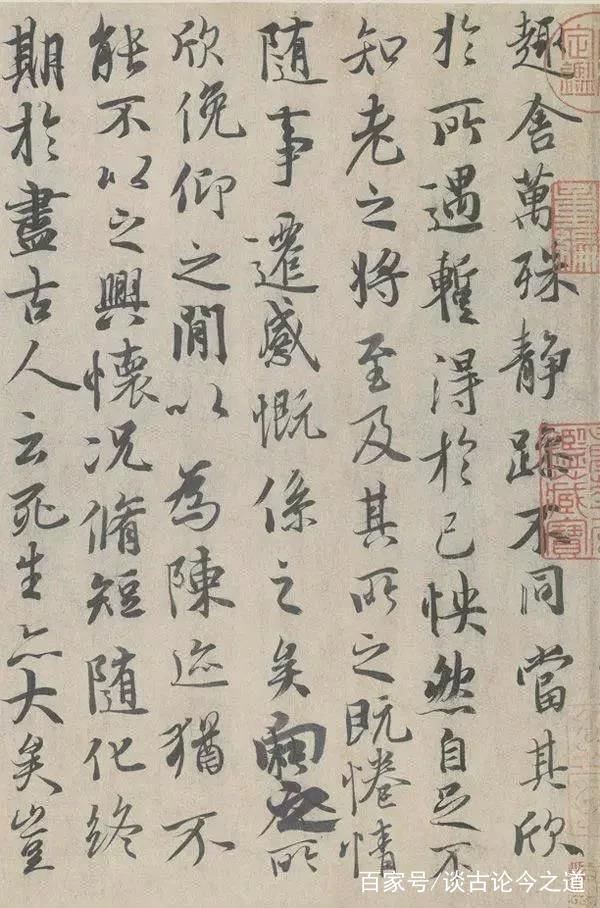 趣舍萬殊静躁不同當其欣
於所遇蹔得於己怏然自足不
知老之將至及其所之既惓情
隨事遷感慨係之矣向之所
欣俛仰之閒以為陳迹猶不
能不以之興懷况脩短隨化終
期於盡古人云死生亦大矣豈
百家号/谈古论今之道